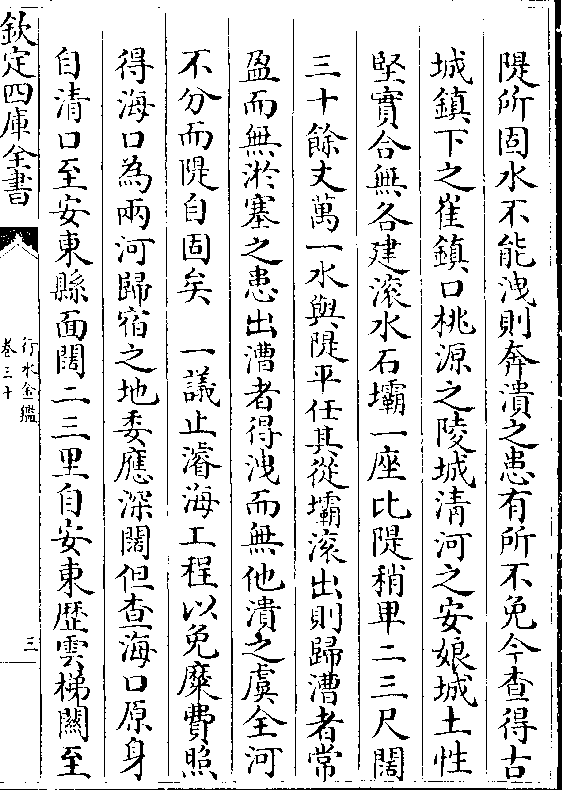 隄所固水不能洩則奔潰之患有所不免今查得古
城鎮下之崔鎮口桃源之陵城清河之安娘城土性
堅實合無各建滚水石壩一座比隄稍卑二三尺闊
三十餘丈萬一水與隄平任其從壩滚出則歸漕者常
盈而無淤塞之患出漕者得洩而無他潰之虞全河
不分而隄自固矣　一議止濬海工程以免糜費照
得海口為兩河歸宿之地委應深闊但查海口原身
自清口至安東縣面闊二三里自安東歴雲梯關至
欽定四庫全書
行水金鑑
卷三十
三